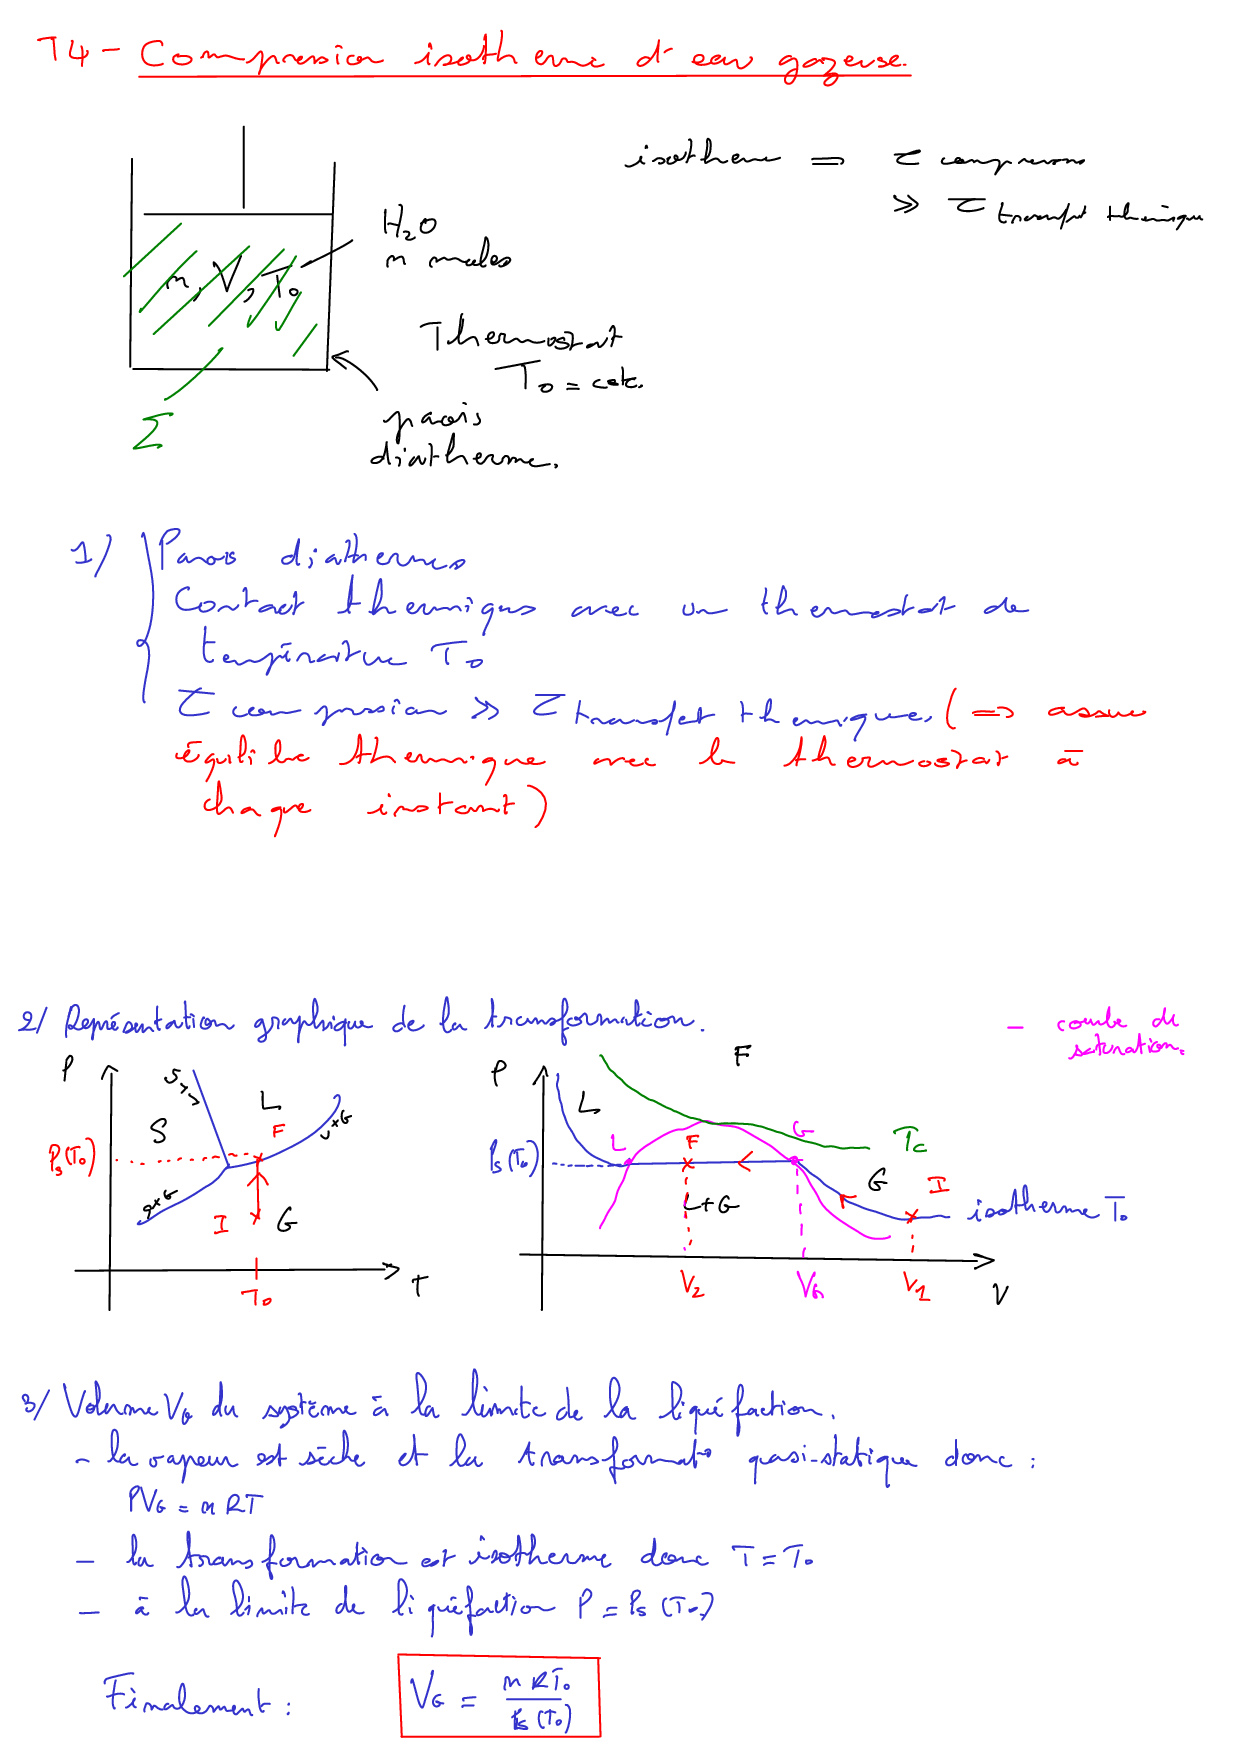 T4 - Compression isotherme d'eau gazeuse.
isotherme = τ compression
≫ τ transfert thermique
H₂O
n moles
n, V, T₀
Thermostat
T₀ = cste.
Σ
parois
diatherme.
1/ Parois diathermes
Contact thermique avec un thermostat de
température T₀
τ compression ≫ τ transfert thermique. (=> assure
équilibre thermique avec le thermostat à
chaque instant)
2/ Représentation graphique de la transformation.
- courbe de
saturation.
P
S+L
S
L
F
L+G
Ps(T₀)
S+G
I
G
T₀
T
P
L
F
L
F
G
Tc
Ps(T₀)
L+G
G
I
isotherme T₀
V₂
VG
V₁
V
3/ Volume VG du système à la limite de la liquéfaction.
- la vapeur est sèche et la transformat° quasi-statique donc :
PVG = nRT
- la transformation est isotherme donc T = T₀
- à la limite de liquéfaction P = Ps(T₀)
Finalement : VG = nRT₀ / Ps(T₀)